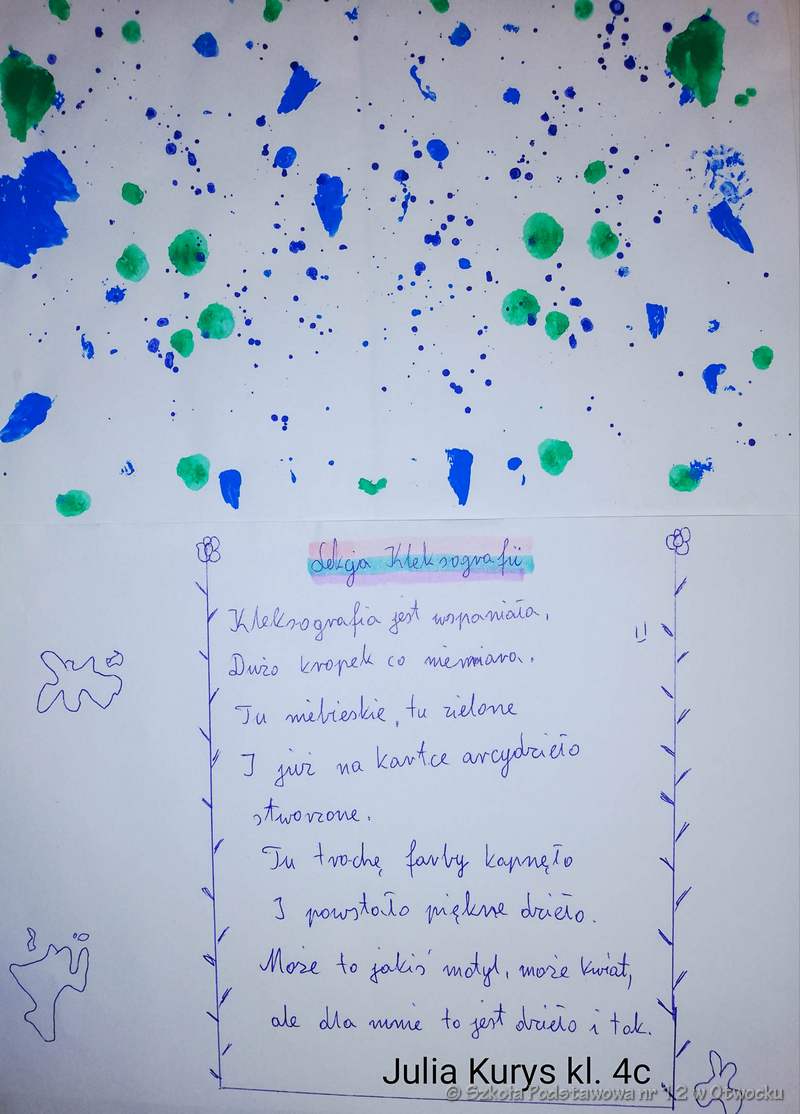 Lekcja Kleksografii
Kleksografia jest wspaniała,
Dużo kropek co niemiara.
Tu niebieskie, tu zielone
I już na kartce arcydzieło
stworzone.
Tu trochę farby kapnęło
I powstało piękne dzieło.
Może to jakiś motyl, może kwiat,
ale dla mnie to jest dzieło i tak.
Julia Kurys kl. 4c
© Szkoła Podstawowa nr 12 w Otwocku